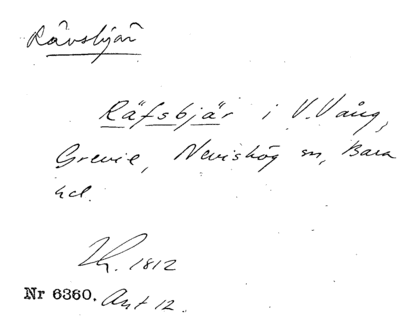 Rävsbjär
Räfsbjär i V. Vång,
Grevie, Nevishög sn, Bara
hd.
Zh. 1812
Nr 6360. Akt 12.